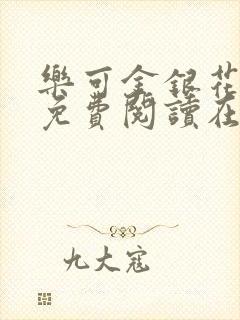 樂可金銀花
免費閱讀在
九大寇